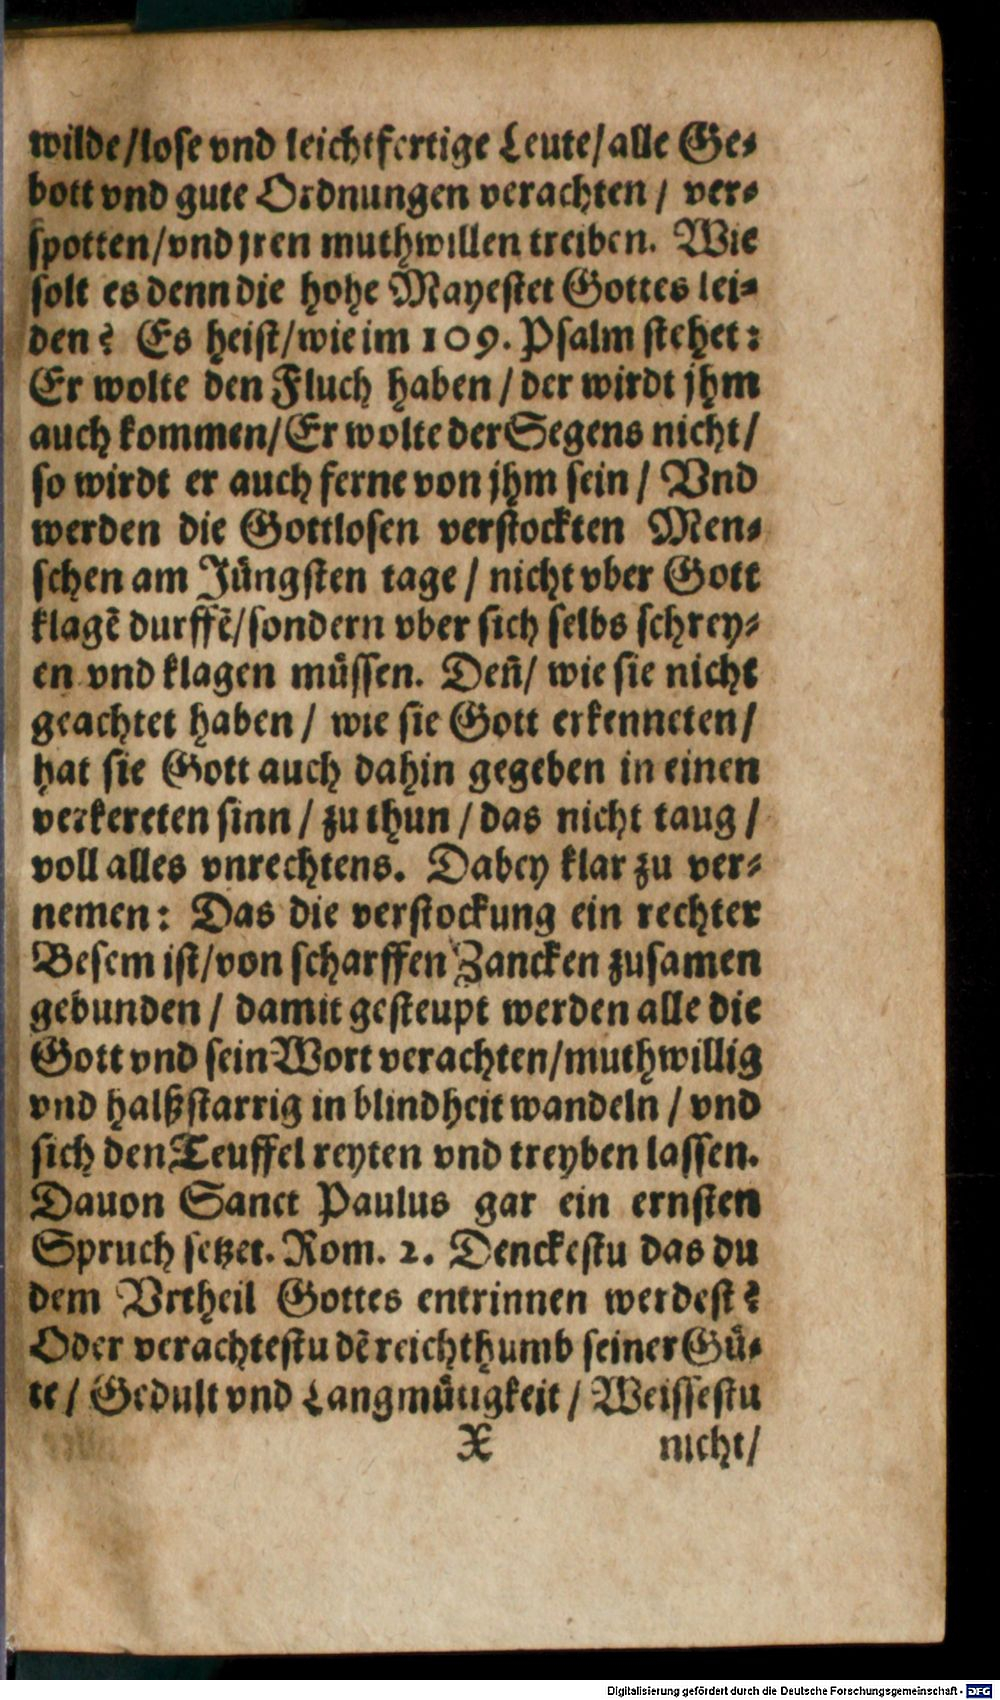 wilde/lose vnd leichtfertige Leute/alle Ge-
bott vnd gute Ordnungen verachten / ver-
spotten/vnd jren muthwillen treiben. Wie
solt es denn die hohe Mayestet Gottes lei-
den? Es heist/wie im 109. Psalm stehet:
Er wolte den Fluch haben / der wirdt jhm
auch kommen/Er wolte der Segens nicht/
so wirdt er auch ferne von jhm sein / Vnd
werden die Gottlosen verstockten Men-
schen am Jüngsten tage / nicht vber Gott
klagē durffē/sondern vber sich selbs schrey-
en vnd klagen müssen. Den̄/ wie sie nicht
geachtet haben / wie sie Gott erkenneten/
hat sie Gott auch dahin gegeben in einen
verkereten sinn / zu thun / das nicht taug /
voll alles vnrechtens. Dabey klar zu ver-
nemen: Das die verstockung ein rechter
Besem ist/von scharffen Zancken zusamen
gebunden / damit gesteupt werden alle die
Gott vnd sein Wort verachten/muthwillig
vnd halßstarrig in blindheit wandeln / vnd
sich den Teuffel reyten vnd treyben lassen.
Dauon Sanct Paulus gar ein ernsten
Spruch setzet. Rom. 2. Denckestu das du
dem Vrtheil Gottes entrinnen werdest?
Oder verachtestu dē reichthumb seiner Gü-
te / Gedult vnd Langmütigkeit / Weissestu
X nicht/
Digitalisierung gefördert durch die Deutsche Forschungsgemeinschaft - DFG